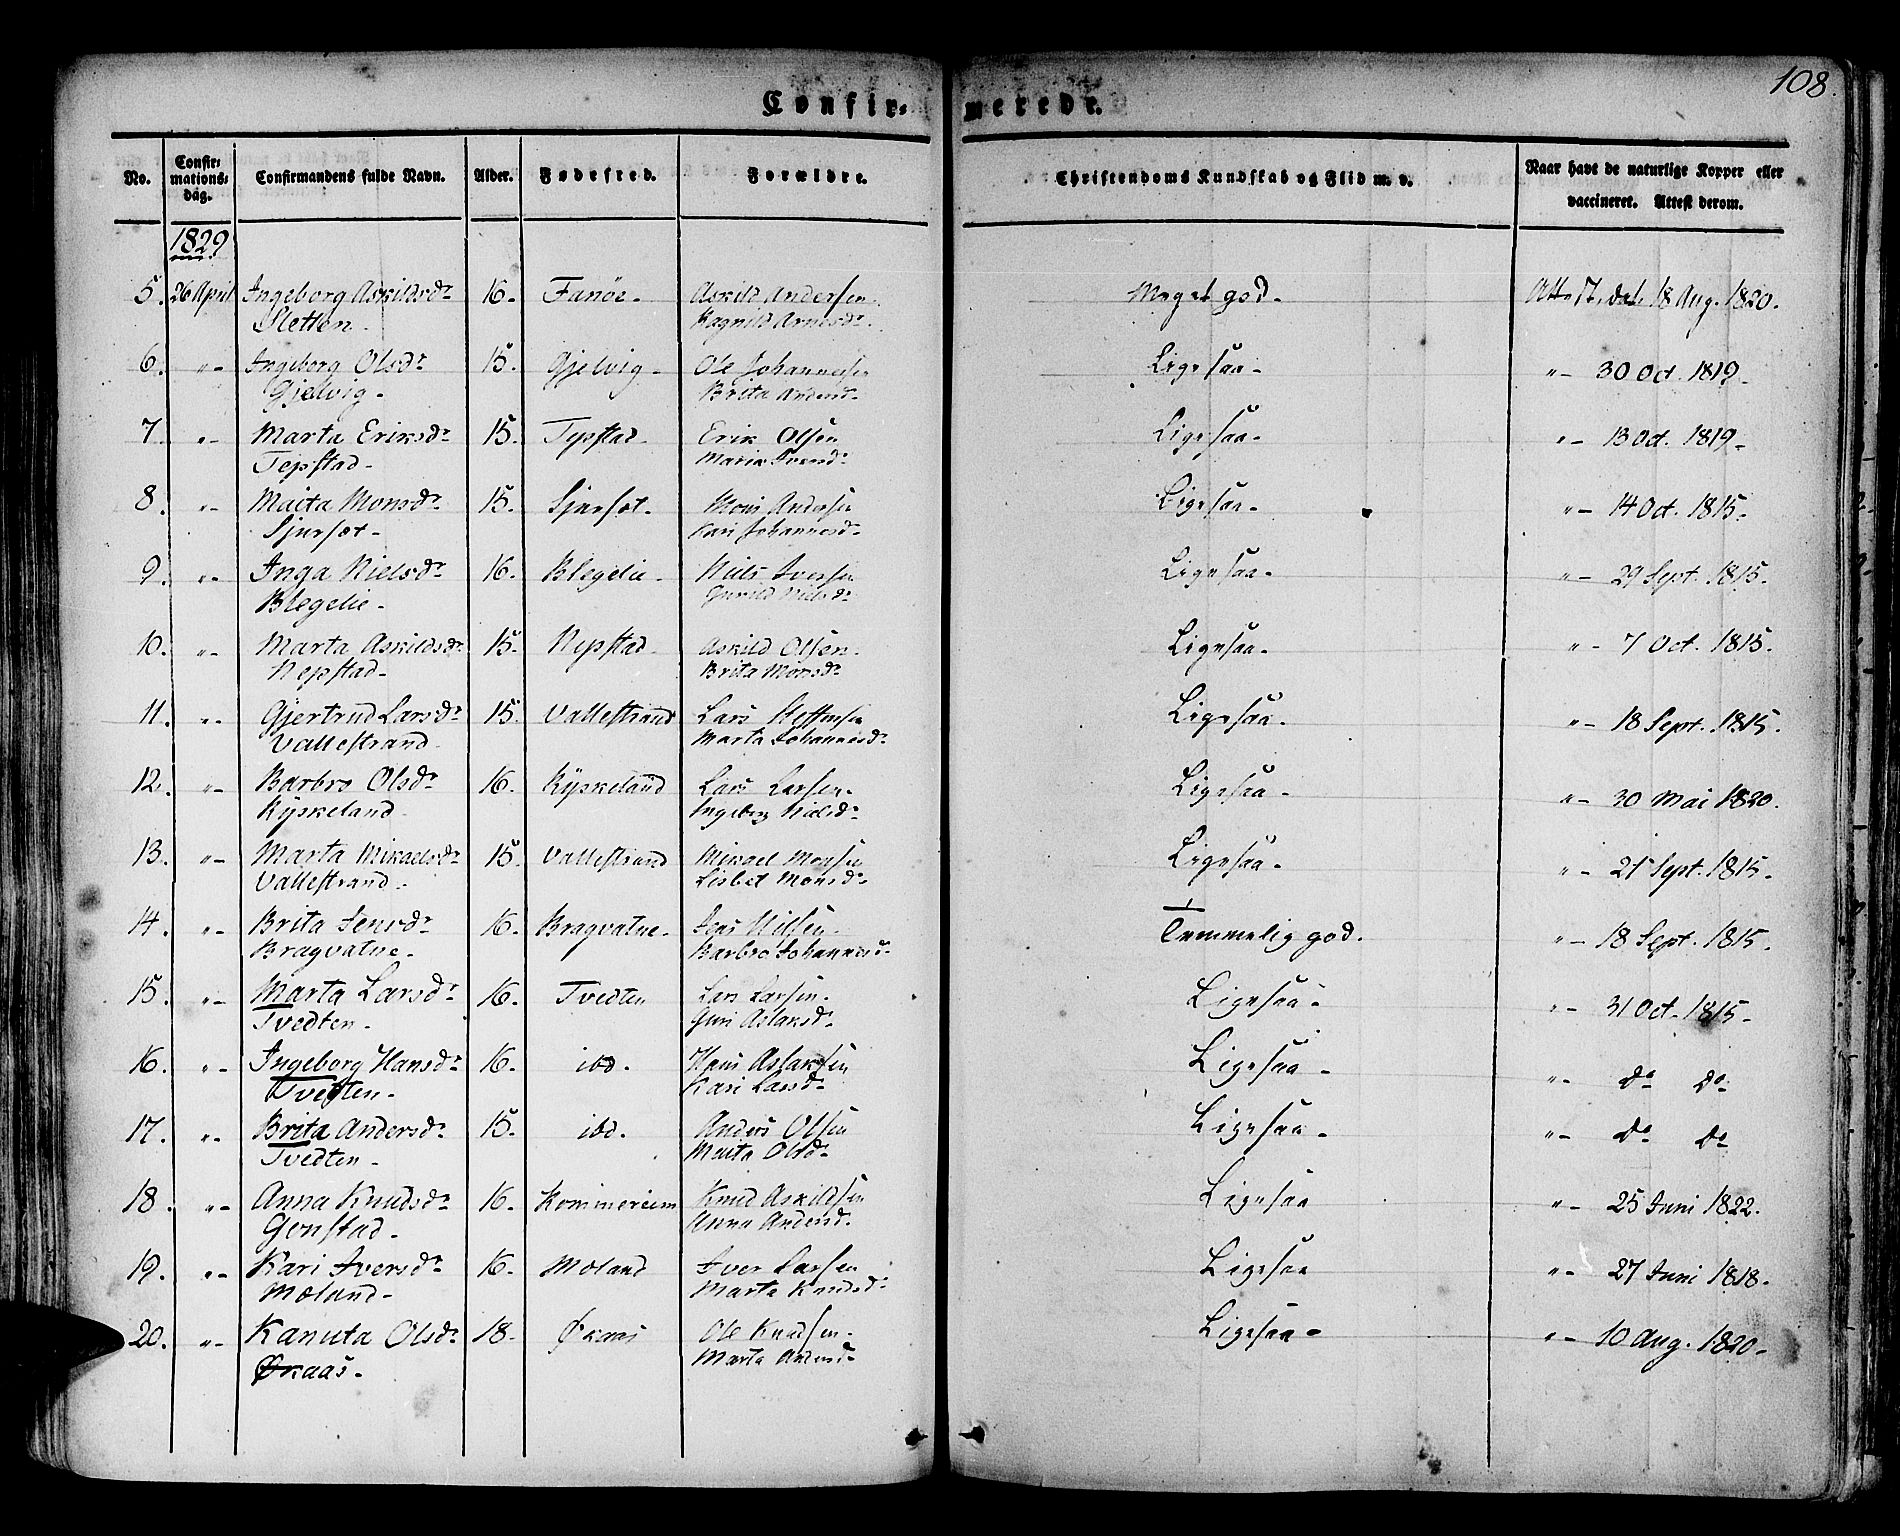 108.
Confir= merede.
No. Confir= mations= dag. Confirmandens fulde Navn. Alder. Fødested. Forældre. Christendoms Kundskab og Flid m. v. Naar havt de naturlige Kopper eller vaccineret. Attest derom.
1829
5. 26 April Ingeborg Askildsdr 16. Fanöe. Askild Andersen Meget god. Attest. dat. 18 Aug. 1820.
Sletten. Ragnild Arnesdr.
6. "- Ingeborg Olsdr 15. Gjelvig. Ole Johannesen Ligesaa. "- 30 Oct. 1819.
Gjelvig. Brita Andersd.
7. "- Marta Eriksdr 15. Tepstad. Erik Olsen Ligesaa. "- 13 Oct. 1819.
Tepstad. Marie Iversd.
8. "- Marta Monsdr 15. Sjursæt. Mons Andersen Ligesaa. "- 14 Oct. 1815.
Sjursæt. Kari Johannesd.
9. "- Inga Nielsdr 16. Blegelie. Niels Iversen Ligesaa. "- 29 Sept. 1815.
Blegelie. Gunild Nielsd.
10. "- Marta Askildsdr 15. Nepstad. Askild Olsen. Ligesaa. "- 7 Oct. 1815.
Nepstad. Brita Monsdr
11. "- Gjertrud Larsdr 15. Vallestrand Lars Steffensen Ligesaa. "- 18 Sept. 1815.
Vallestrand. Marta Johannesd.
12. "- Barbro Olsdr 16. Kyskeland Lars Larsen. Ligesaa. "- 30 Mai 1820.
Kyskeland. Ingeborg Nielsd.
13. "- Marta Mikaelsdr 15. Vallestrand Mikael Monsen Ligesaa. "- 21 Sept. 1815.
Vallestrand. Lisbet Monsd.
14. "- Brita Jensdr 16. Bragvatne. Jens Nilsen. Temmelig god. "- 18 Sept. 1815.
Bragvatne. Barbro Johannesd.
15. "- Marta Larsdr 16. Tvedten Lars Larsen. Ligesaa. "- 31 Oct. 1815.
Tvedten. Guri Aslaksd.
16. "- Ingeborg Hansdr 16. ibd. Hans Aslaksen Ligesaa. "- Do Do
Tvedten. Kari Larsd.
17. "- Brita Andersdr 15. ibd. Anders Olsen Ligesaa. "- Do Do
Tvedten. Marta Olsd.
18. "- Anna Knudsdr 16. Rommereim Knud Askildsen Ligesaa "- 25 Juni 1822.
Genstad. Anna Andersd.
19. "- Kari Iversdr 16. Mæland Iver Larsen Ligesaa "- 27 Juni 1818.
Mæland. Marta Knudsd.
20. "- Kanuta Olsdr 18. Økaas Ole Knudsen. Ligesaa. "- 10 Aug. 1820.
Økaas. Marta Andersd.